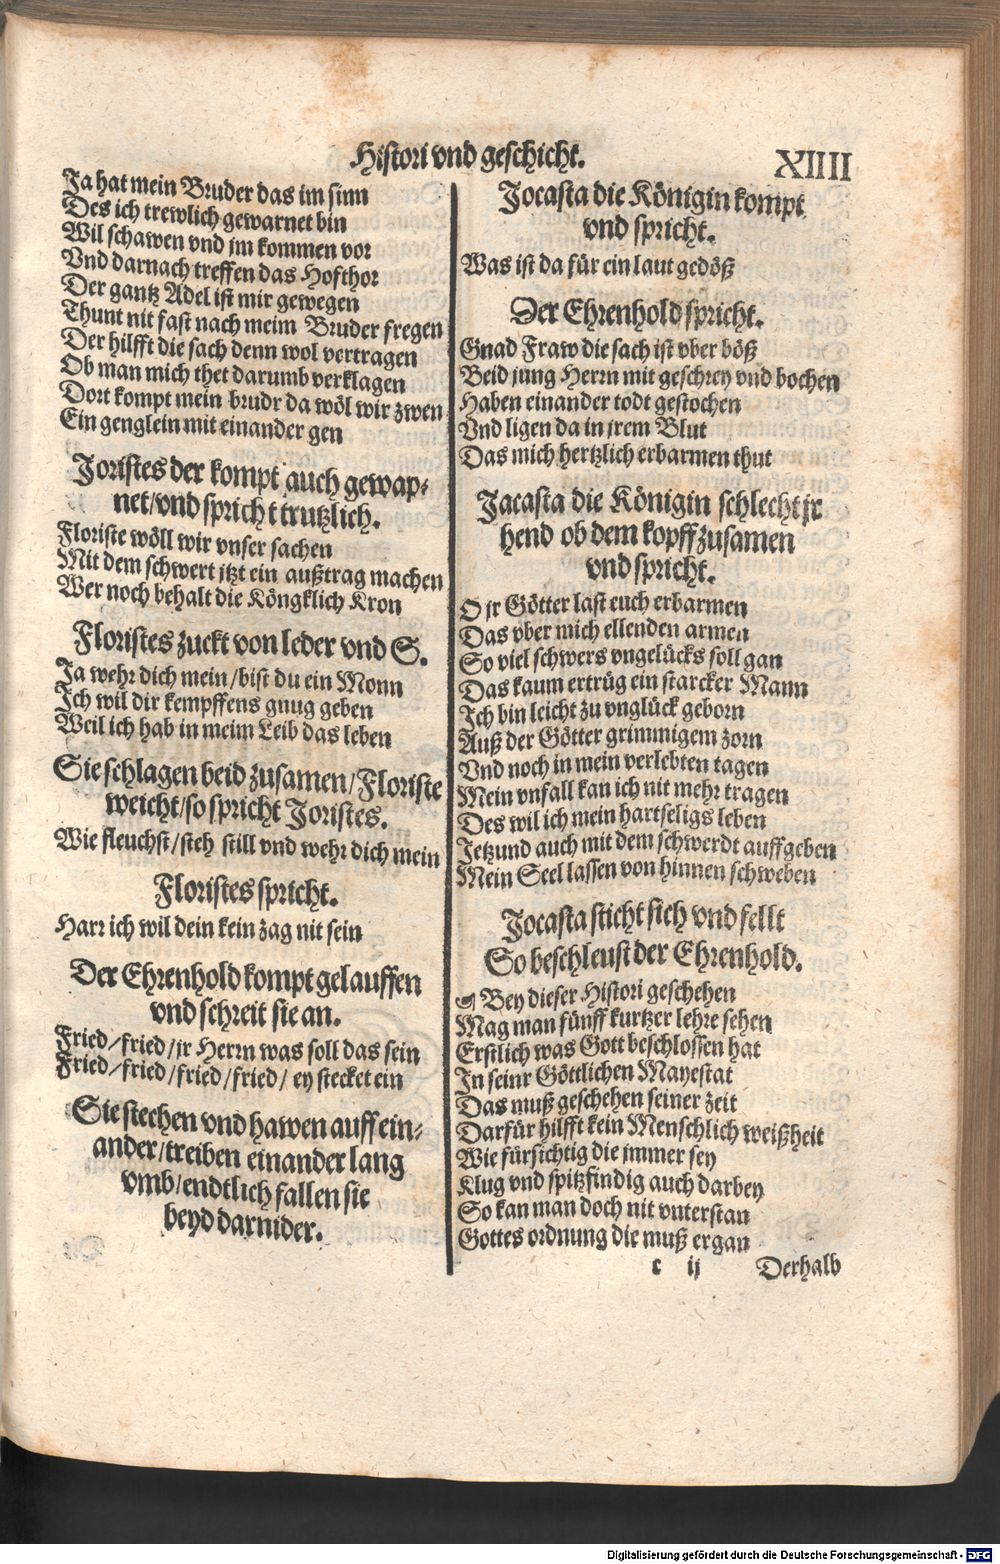 Histori vnd geschicht.
XIIII
Ja hat mein Bruder das im sinn
Des ich trewlich gewarnet bin
Wil schawen vnd jm kommen vor
Vnd darnach treffen das Hofthor
Der gantz Adel ist mir gewegen
Thunt nit fast nach meim Bruder fregen
Der hilfft die sach denn wol vertragen
Ob man mich thet darumb verklagen
Dort kompt mein brudr da wöl wir zwen
Ein genglein mit einander gen
Joristes der kompt auch gewap-
net/vnd spricht trutzlich.
Floriste wöll wir vnser sachen
Mit dem schwert jtzt ein außtrag machen
Wer noch behalt die Köngklich Kron
Floristes zuckt von leder vnd S.
Ja wehr dich mein/bist du ein Monn
Ich wil dir kempffens gnug geben
Weil ich hab in meim Leib das leben
Sie schlagen beid zusamen/Floriste
weicht/so spricht Joristes.
Wie fleuchst/steh still vnd wehr dich mein
Floristes spricht.
Harr ich wil dein kein zag nit sein
Der Ehrenhold kompt gelauffen
vnd schreit sie an.
Fried/fried/jr Herrn was soll das sein
Fried/fried/fried/fried/ ey stecket ein
Sie stechen vnd hawen auff ein-
ander/treiben einander lang
vmb/endtlich fallen sie
beyd darnider.
Jocasta die Königin kompt
vnd spricht.
Was ist da für ein laut gedöß
Der Ehrenhold spricht.
Gnad Fraw die sach ist vber böß
Beid jung Herrn mit geschrey vnd bochen
Haben einander todt gestochen
Vnd ligen da in jrem Blut
Das mich hertzlich erbarmen thut
Jacasta die Königin schlecht jr
hend ob dem kopff zusamen
vnd spricht.
O jr Götter last euch erbarmen
Das vber mich ellenden armen
So viel schwers vngelücks soll gan
Das kaum ertrüg ein starcker Mann
Ich bin leicht zu vnglück geborn
Auß der Götter grimmigem zorn
Vnd noch in mein verlebten tagen
Mein vnfall kan ich nit mehr tragen
Des wil ich mein hartseligs leben
Jetzund auch mit dem schwerdt auffgeben
Mein Seel lassen von hinnen schweben
Jocasta sticht sich vnd fellt
So beschleust der Ehrenhold.
Bey dieser Histori geschehen
Mag man fünff kurtzer lehre sehen
Erstlich was Gott beschlossen hat
In seinr Göttlichen Mayestat
Das muß geschehen seiner zeit
Darfür hilfft kein Menschlich weißheit
Wie fürsichtig die jmmer sey
Klug vnd spitzfindig auch darbey
So kan man doch nit vnterstan
Gottes ordnung die muß ergan
c ij Derhalb
Digitalisierung gefördert durch die Deutsche Forschungsgemeinschaft - DFG